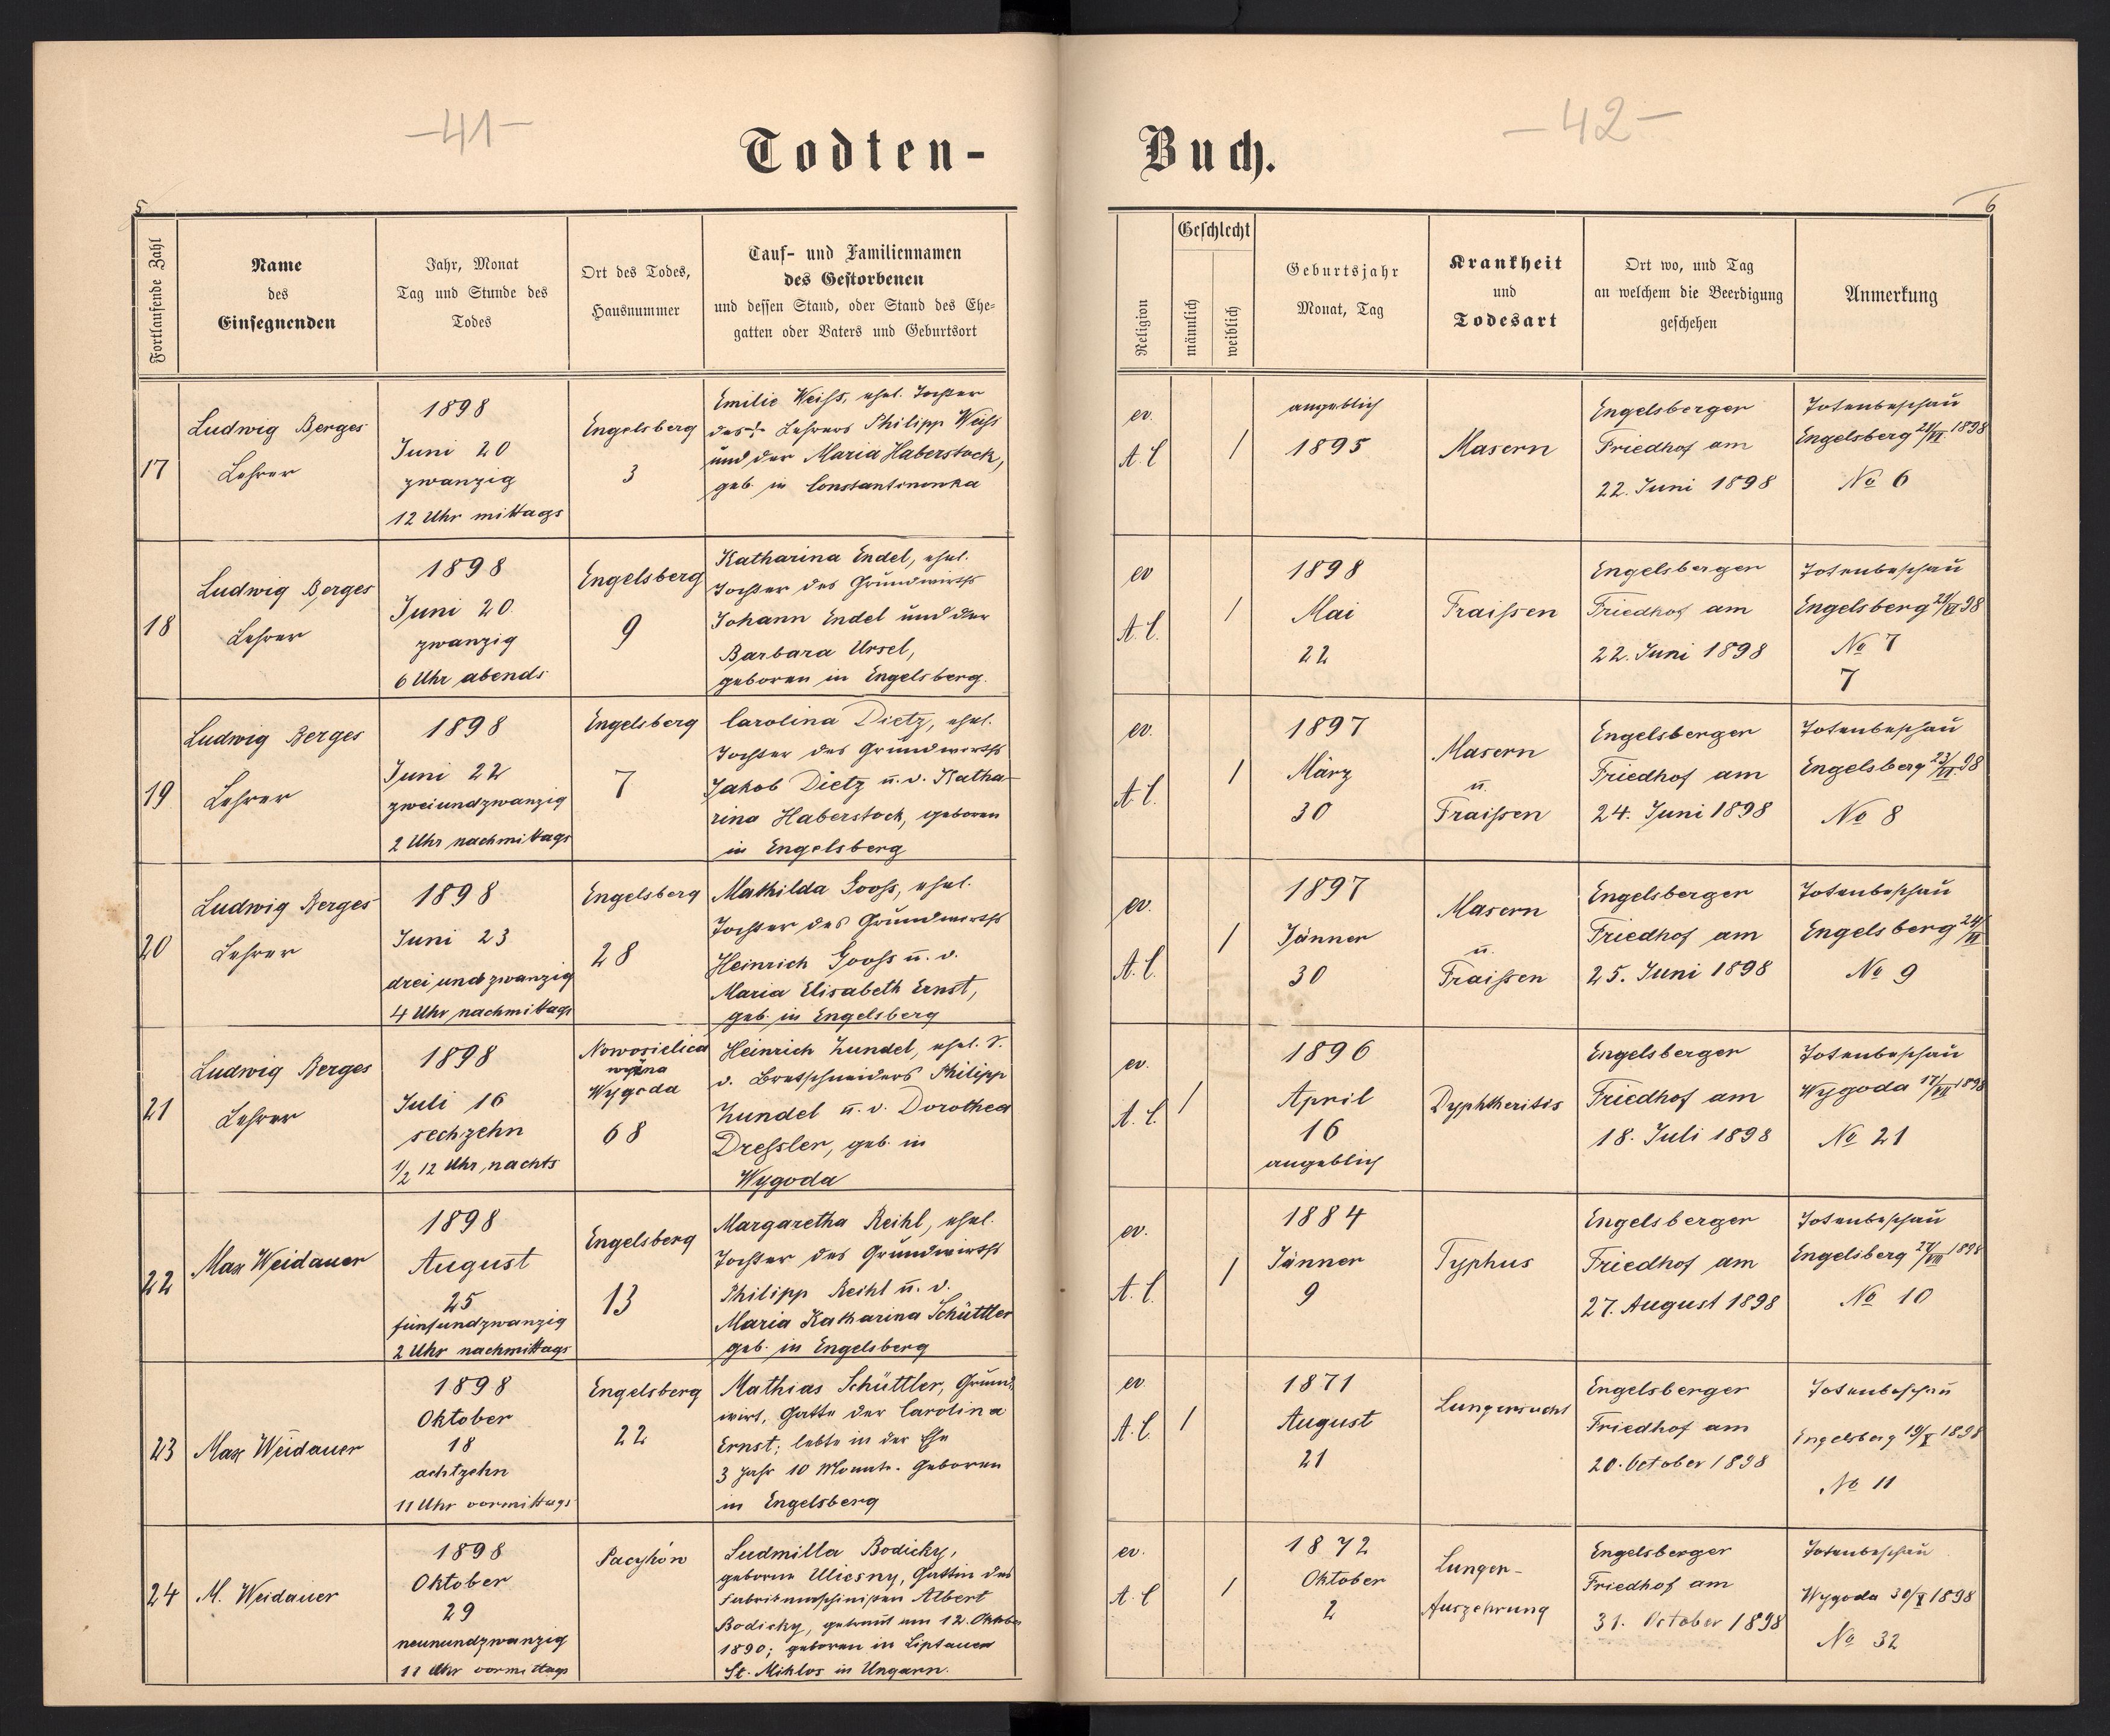 -41-
Todten-
5
Fortlaufende Zahl
Name
des
Einsegnenden
Jahr, Monat
Tag und Stunde des
Todes
Ort des Todes,
Hausnummer
Tauf- und Familiennamen
des Gestorbenen
und dessen Stand, oder Stand des Ehe-
gatten oder Vaters und Geburtsort
17
Ludwig Berges
Lehrer
1898
Juni 20
zwanzig
12 Uhr mittags
Engelsberg
3
Emilie Weiss, ehel. Tochter
des Lehrers Philipp Weiss
und der Maria Haberstock,
geb. in
18
Ludwig Berges
Lehrer
1898
Juni 20
zwanzig
6 Uhr abends
Engelsberg
9
Katharina Endel, ehel.
Tochter des Grundwirths
Johann Endel und der
Barbara Ursel,
geboren in Engelsberg.
19
Ludwig Berges
Lehrer
1898
Juni 22
zweiundzwanzig
2 Uhr nachmittags
Engelsberg
7
Carolina Dietz, ehel.
Tochter des Grundwirths
Jakob Dietz u. d. Katha-
rina Haberstock, geboren
in Engelsberg
20
Ludwig Berges
Lehrer
1898
Juni 23
dreiundzwanzig
4 Uhr nachmittags
Engelsberg
28
Mathilda Gooss, ehel.
Tochter des Grundwirths
Heinrich Gooss u. d.
Maria Elisabeth Ernst,
geb. in Engelsberg
21
Ludwig Berges
Lehrer
1898
Juli 16
sechzehn
1/2 12 Uhr, nachts
Nowosielica
wyżna
Wygoda
68
Heinrich Zundel, ehel. S.
d. Bretschneiders Philipp
Zundel u. d. Dorothea
Dressler, geb. in
Wygoda
22
Max Weidauer
1898
August
25
fünfundzwanzig
2 Uhr nachmittags
Engelsberg
13
Margaretha Reihl, ehel.
Tochter des Grundwirths
Philipp Reihl u. d.
Maria Katharina Schüttler
geb. in Engelsberg
23
Max Weidauer
1898
Oktober
18
achtzehn
11 Uhr vormittags
Engelsberg
22
Mathias Schüttler, Grund-
wirt, Gatte der Carolina
Ernst; lebte in der Ehe
3 Jahr 10 Monate. Geboren
in Engelsberg
24
M. Weidauer
1898
Oktober
29
neunundzwanzig
11 Uhr vormittags
Pacyków
Ludmilla Bodicky,
geborne Uliesny, Gattin des
Fabriksmaschinisten Albert
Bodicky, getraut am 12. Oktober
1890; geboren in Liptauer
St. Miklos in Ungarn.
-42-
Buch.
6
Religion
Geschlecht
männlich
weiblich
Geburtsjahr
Monat, Tag
Krankheit
und
Todesart
Ort wo, und Tag
an welchem die Beerdigung
geschehen
Anmerkung
ev.
A. C.
/
angeblich
1895
Masern
Engelsberger
Friedhof am
22. Juni 1898
Totenbeschau
Engelsberg 21/VI 1898
No 6
ev
A. C.
/
1898
Mai
22
Fraissen
Engelsberger
Friedhof am
22. Juni 1898
Totenbeschau
Engelsberg 21/VI 98
No 7
7
ev.
A. C.
/
1897
März
30
Masern
u.
Fraissen
Engelsberger
Friedhof am
24. Juni 1898
Totenbeschau
Engelsberg 23/VI 98
No 8
ev.
A. C.
/
1897
Jänner
30
Masern
u.
Fraissen
Engelsberger
Friedhof am
25. Juni 1898
Totenbeschau
Engelsberg 24/VI
No 9
ev.
A. C.
/
1896
April
16
angeblich
Dyphtheritis
Engelsberger
Friedhof am
18. Juli 1898
Totenbeschau
Wygoda 17/VII 1898
No 21
ev.
A. C.
/
1884
Jänner
9
Typhus
Engelsberger
Friedhof am
27. August 1898
Totenbeschau
Engelsberg 27/VIII 1898
No 10
ev.
A. C.
/
1871
August
21
Lungensucht
Engelsberger
Friedhof am
20. October 1898
Totenbeschau
Engelsberg 19/X 1898
No 11
ev.
A. C.
/
1872
Oktober
2
Lungen-
Auszehrung
Engelsberger
Friedhof am
31. October 1898
Totenbeschau
Wygoda 30/X 1898
No 32